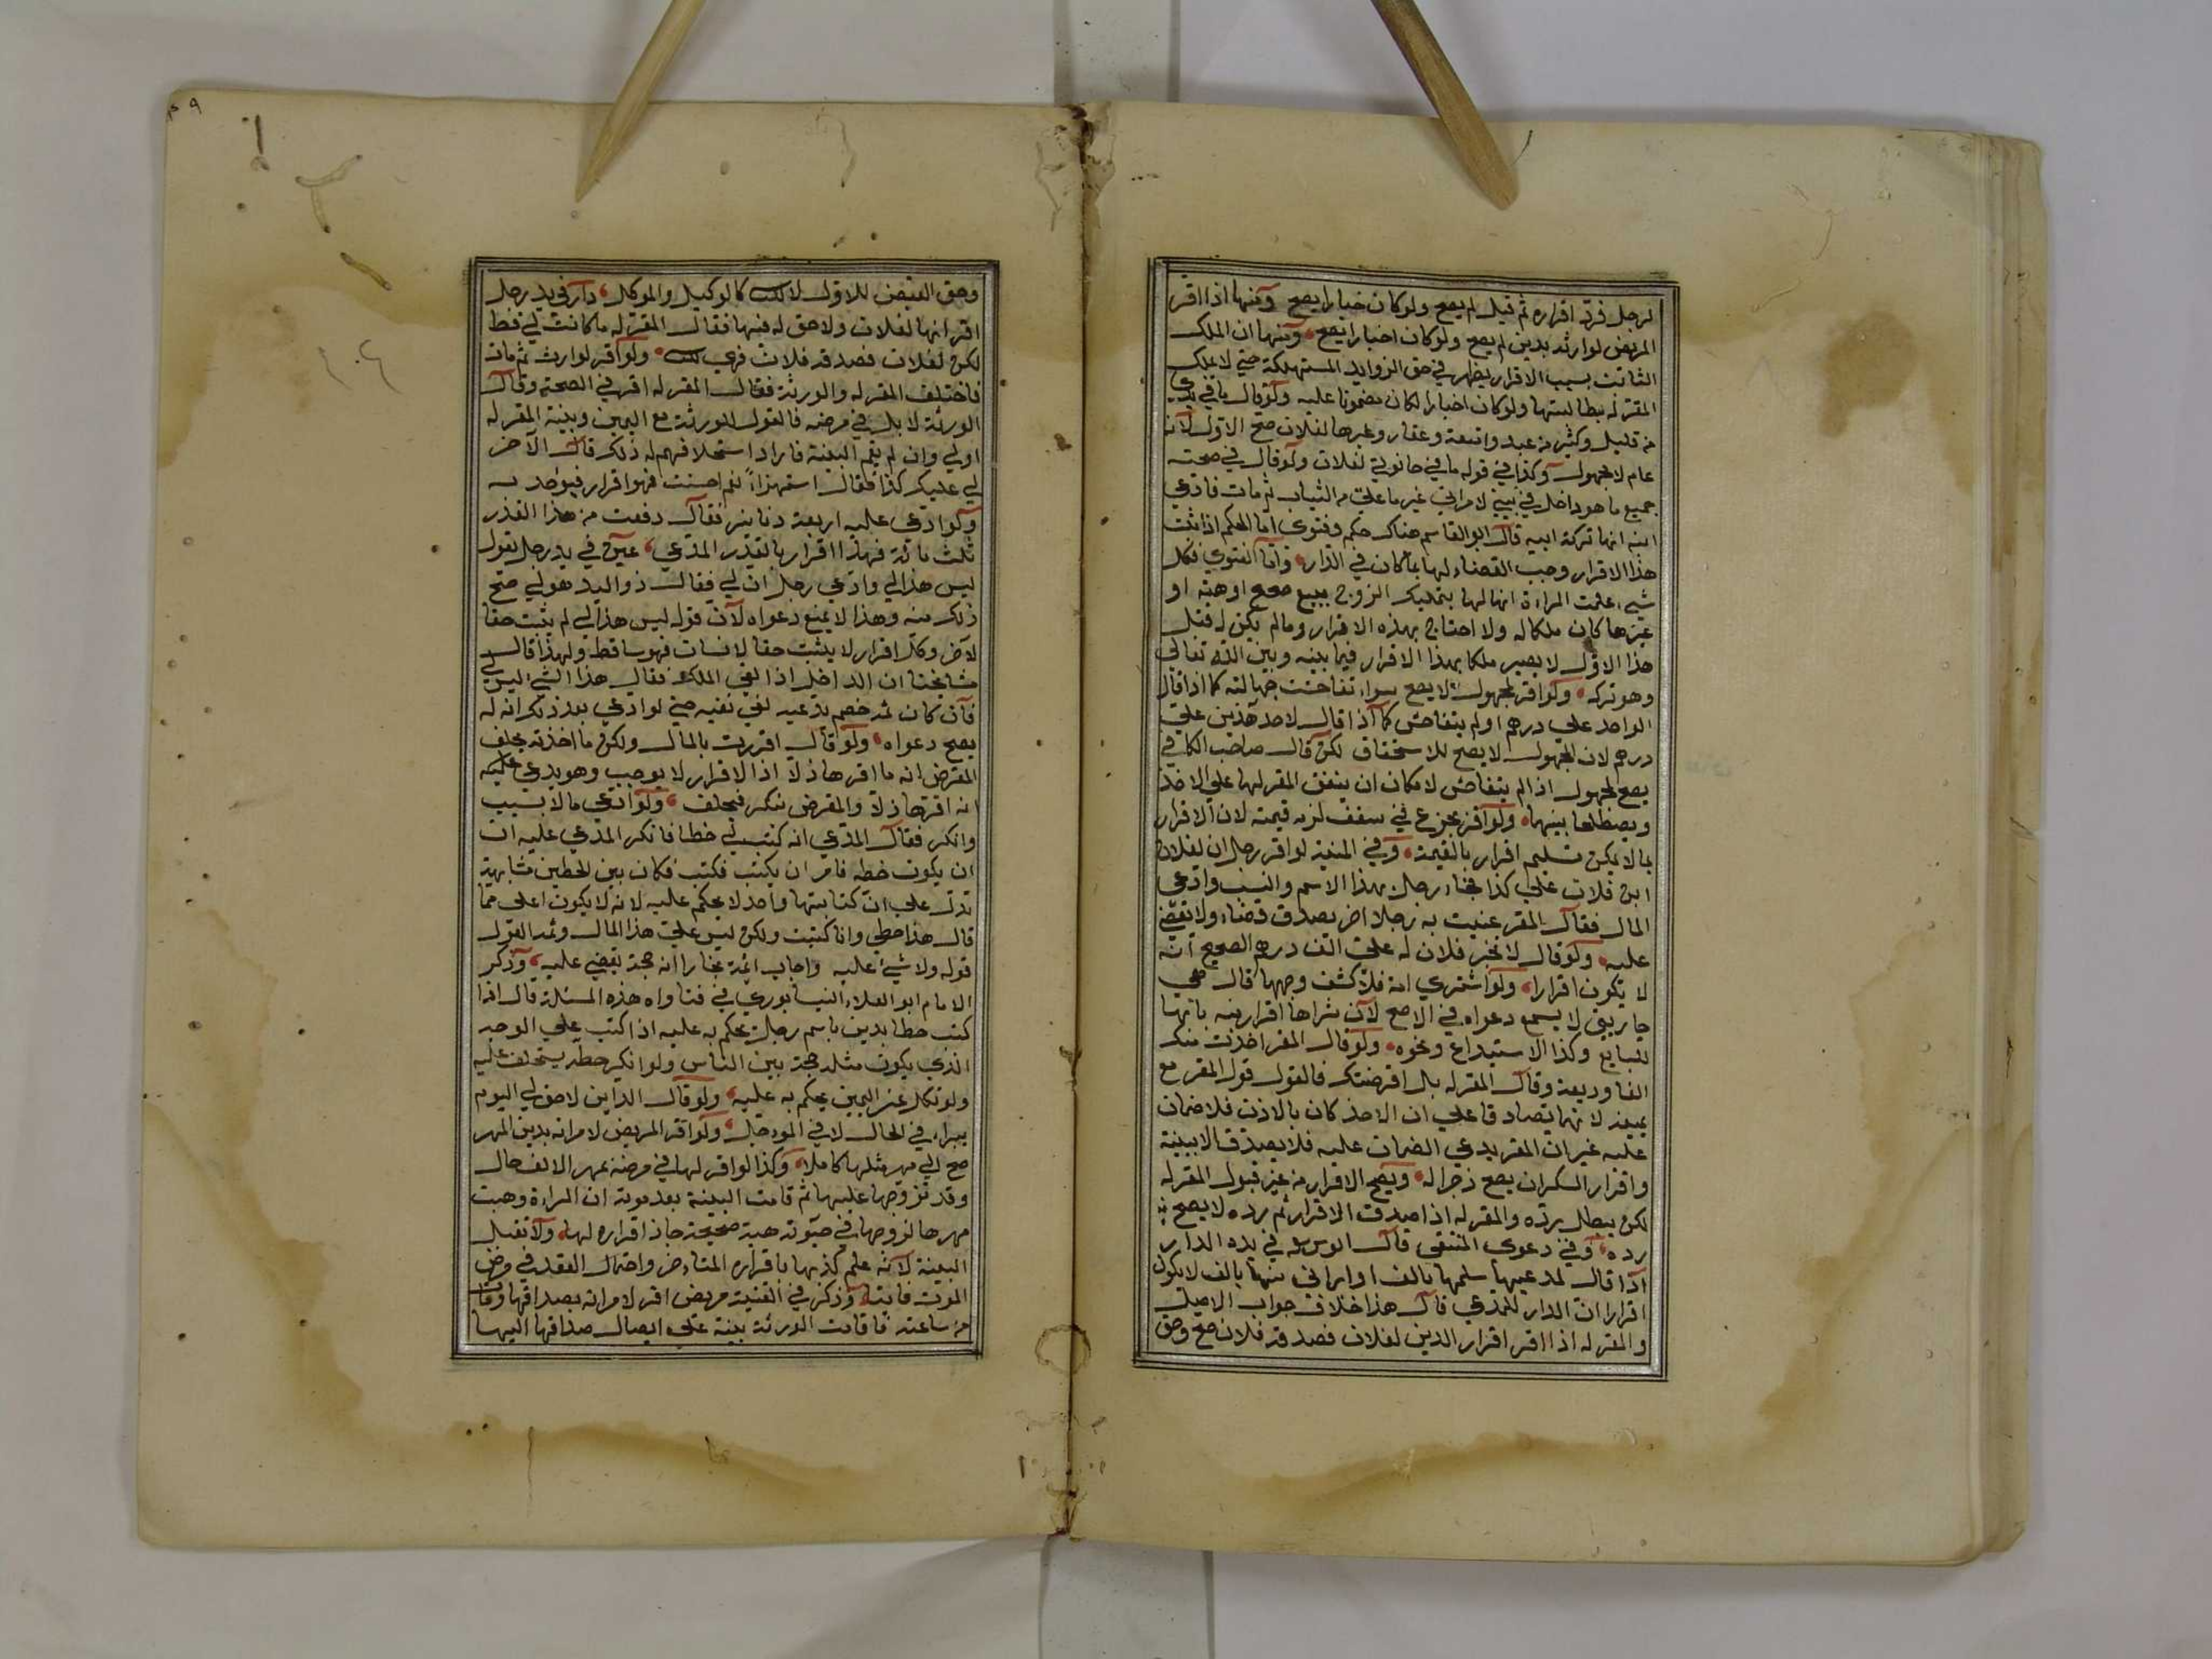 لرجل فرد اقراره ثم قبل لم يصح ولو كان اخبارا يصح ومنها اذا اقر
المريض لوارثه بدين لم يصح ولو كان اخبارا يصح ومنها ان الملك
الثابت بسبب الاقرار يظهر في حق الزوايد المستهلكة حتي لا يملك
المقر له مطالبتها ولو كان اخبارا لكان مضمونا عليه ولو قال ما في يدي
من قليل وكثير من عبد وامتعة وعقار وغيرها لفلان صح الاقرار لانه
عام لا مجهول وكذا في قوله ما في حانوتي لفلان ولو قال في صحته
جميع ما هو داخل في بيتي لامراتي غير ما علي من الثياب ثم مات فادعي
ابنه انها تركة ابيه قال ابو القاسم هناك حكم وفتوي اما الحكم اذا ثبت
هذا الاقرار وجب القضاء لها بما كان في الدار واما الفتوي فكل
شيء علمت المراءة انها لها بتمليك الزوج ببيع صحيح او هبة او
غيرها كان ملكا له ولا احتاج بهذه الاقرار وما لم يكن له قبل
هذا الاول لا يصير ملكا بهذا الاقرار فيما بينه وبين الله تعالي
وهو تركه ولو اقر لمجهول لا يصح سواء تفاحشت جهالته كما اذا قال
الواحد علي درهم او لم يتفاحش كما اذا قال لاحد هذين علي
درهم لان المجهول لا يصح للاستحقاق لكن قال صاحب الكافي
يصح لمجهول اذا لم يتفاحش لامكان ان يتفق المقر لهما علي الاخذ
ويصطلحا بينهما ولو اقر بجزع في سقف لزمه قيمته لان الاقرار
بما لا يمكن تسليم اقرار بالقيمة وفي المنية لو اقر رجل ان لفلان
ابن فلان علي كذا فجاء رجل بهذا الاسم والنسب وادعي
المال فقال المقر عنيت به رجلا اخر يصدق قضاء ولا يقضي
عليه ولو قال لا تخبر فلان له علي الف درهم الصحيح انه
لا يكون اقرارا ولو اشتري امة فلما كشف وجهها قال هي
جاريتي لا يسمع دعواه في الاصح لان شراها اقرار منه بانها
للبايع وكذا الاستيداع ونحوه ولو قال المقر اخذت منك
الفا وديعة وقال المقر له بل اقرضتك فالقول قول المقر مع
يمينه لانهما تصادقا علي ان الاخذ كان بالاذن فلا ضمان
عليه غير ان المقر يدعي الضمان عليه فلا يصدق الا ببينة
واقرار السكران يصح زجرا له ويصح الاقرار من غير قبول المقر له
لكن يبطل برده والمقر له اذا صدق الاقرار ثم رده لا يصح
رده وفي دعوي المنتقي قال ابو يوسف في يده الدار
اذا قال لمدعيها سلمها بالف او ابراني منها بالف لا يكون
اقرارا ان الدار للمدعي قال هذا خلاف جواب الاصل
والمقر له اذا اقر اقرار الدين لفلان فصدقه فلان صح وحق
٤٩
وحق القبض للاول لا للثاني كالوكيل والموكل دار في يد رجل
اقر انها لفلان ولا حق له فيها فقال المقر له ما كانت لي قط
لكن لفلان فصدقه فلان فهي له ولو اقر لوارث ثم مات
فاختلف المقر له والورثة فقال المقر له اقر في الصحة وقال
الورثة لا بل في مرضه فالقول للورثة مع اليمين وبينة المقر له
اولي وان لم يقم البينة فاراد استحلافهم له ذلك قال لاخر
لي عليك كذا فقال استهزاء نعم احسنت فهو اقرار فيؤخذ به
ولو ادعي عليه اربعة دنانير فقال دفعت من هذا القدر
ثلث مائة فهذا اقرار بالقدر المدعي عين في يد رجل يقول
ليس هذا لي وادعي رجل ان لي فقال ذو اليد هو لي صح
ذلك منه وهذا لا يمنع دعواه لان قوله ليس هذا لي لم يثبت حقا
لاخر وكل اقرار لا يثبت حقا لانسان فهو ساقط ولهذا قال
مشايخنا ان الداخل اذا نفي الملك فقال هذا الشيء ليس لي
فان كان ثمه خصم يدعيه نفي نفيه حتي لو ادعي بعد ذلك انه له
يصح دعواه ولو قال اقررت بالمال ولكن ما اخذته يحلف
المقرض انه ما اقر هاذلا اذا الاقرار لا يوجب وهو يدعي عليه
انه اقر هاذلا والمقرض ينكر فيحلف ولو ادعي مالا بسبب
وانكر فقال المدعي انه كتب لي خطا فانكر المدعي عليه ان
ان يكون خطه فامر ان يكتب فكتب فكان بين الخطين مشابهة
تدل علي ان كتابتها واحد لا يحكم عليه لانه لا يكون اعلي مما
قال هذا خطي وانا كتبت ولكن ليس علي هذا المال وثمه القول
قوله ولا شيء عليه واجاب ائمة بخارا انه حجة يقضي عليه وذكر
الامام ابو العلاء النيسابوري في فتاواه هذه المسئلة قال اذا
كتب خطا بدين باسم رجل يحكم به عليه اذا كتب علي الوجه
الذي يكون مثله حجة بين الناس ولو انكر خطه يستحلف عليه
ولو نكل عن اليمين يحكم به عليه ولو قال الداين لا حق لي اليوم
يبراء في الحال لا في المؤجل ولو اقر المريض لامراته بدين المهر
صح الي مهر مثلها كاملا وكذا لو اقر لها في مرضه بمهر الالف حال
وقد تزوجها عليها ثم قامت البينة بعد موته ان المراءة وهبت
مهرها لزوجها في حيوته هبة صحيحة جاز اقراره لها ولا تقبل
البينة لانه علم كذبها باقراره المتاخر واحتمال العقد في مرض
الموت فايت وذكر في القنية مريض اقر لامراته بصداقها ومات
من ساعته فاقامت الورثة بينة علي ايصال صداقها اليها